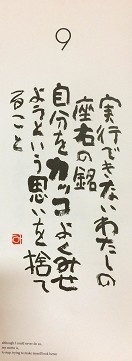 9
実行できないわたしの
座右の銘
自分をカッコよくみせ
ようという思いを捨て
ること
although I could never do so,
my motto is
to stop trying to make myself look better.